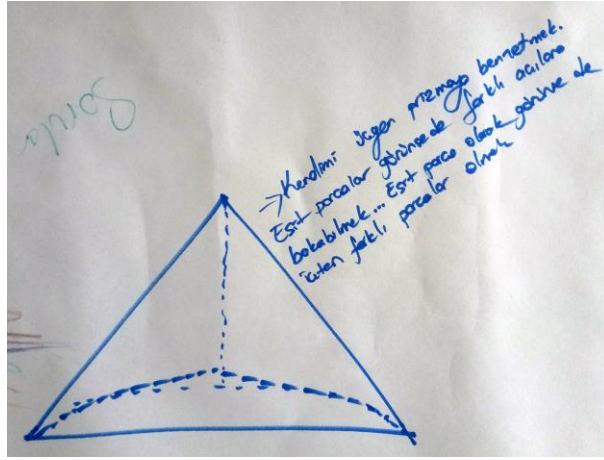 Sorula
→ Kendimi üçgen prizmaya benzetmek.
Eşit parçalar görünsede farklı açılara
bakabilmek... Eşit parça olarak görünse de
içten farklı parçalar olmak